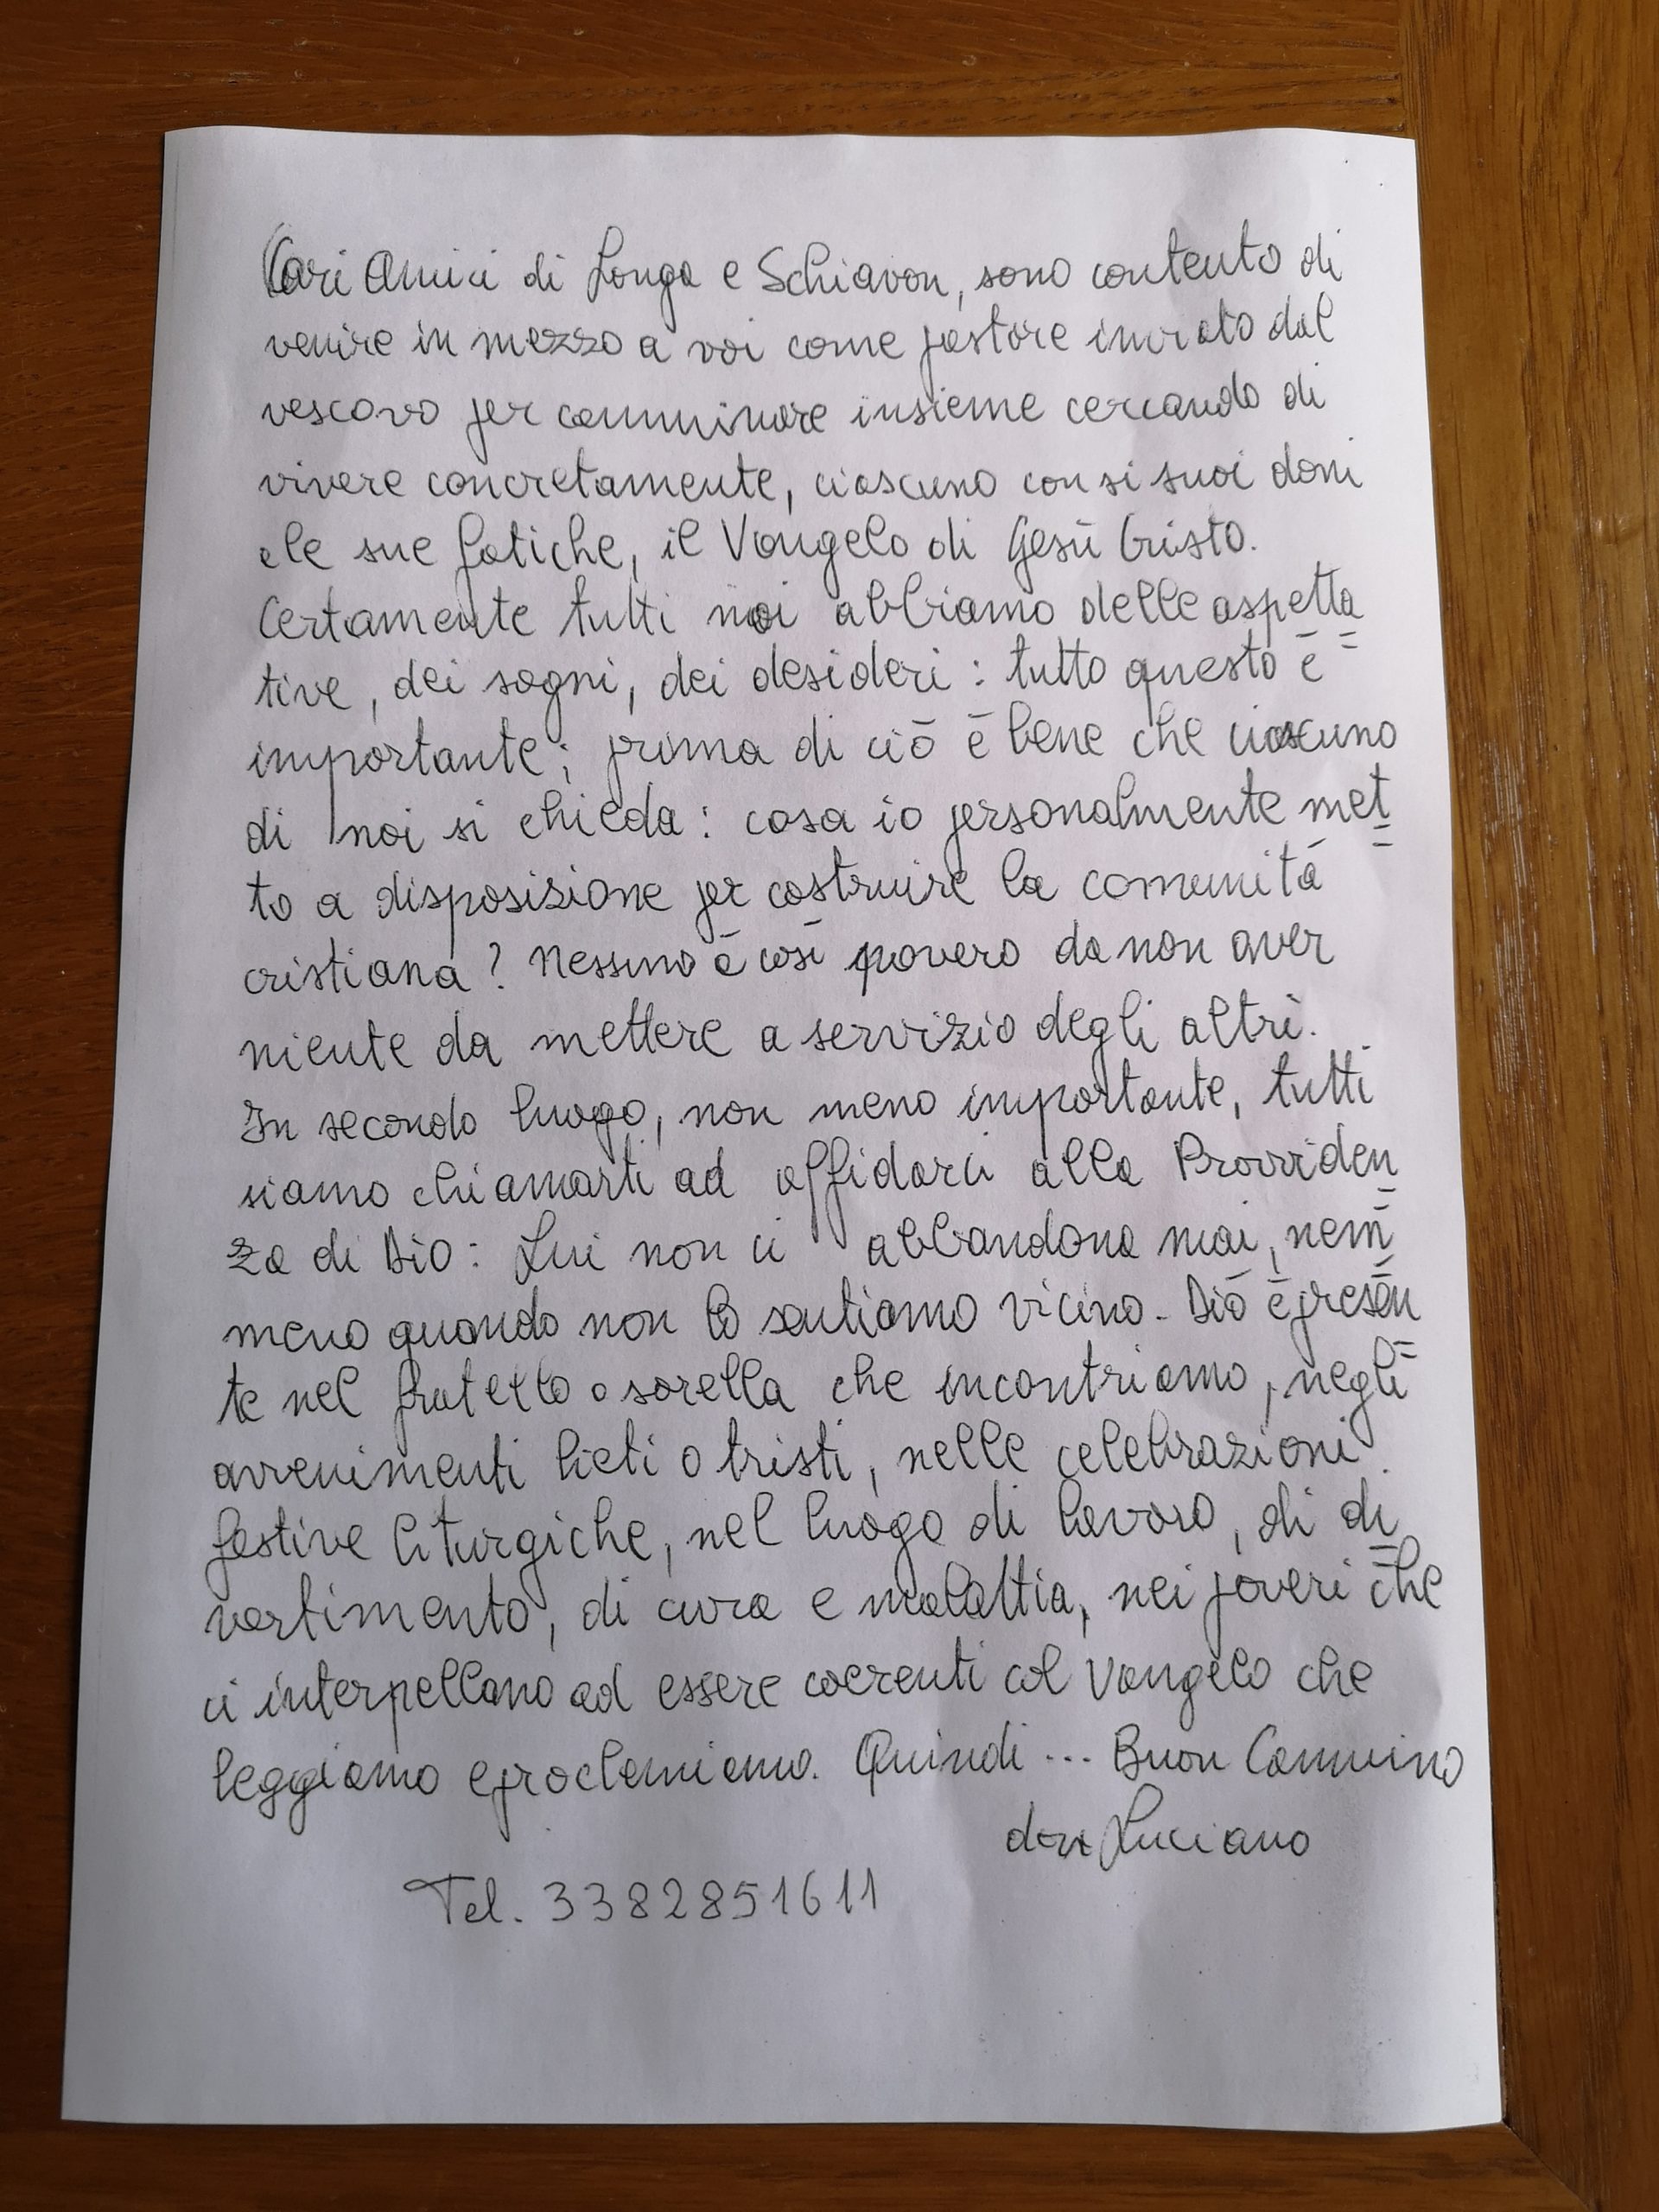 Cari Amici di Longa e Schiavon, sono contento di
venire in mezzo a voi come pastore inviato dal
vescovo per camminare insieme cercando di
vivere concretamente, ciascuno con si suoi doni
e le sue fatiche, il Vangelo di Gesù Cristo.
Certamente tutti noi abbiamo delle aspetta=
tive, dei sogni, dei desideri: tutto questo è
importante; prima di ciò è bene che ciascuno
di noi si chieda: cosa io personalmente met=
to a disposizione per costruire la comunità
cristiana? Nessuno è così povero da non aver
niente da mettere a servizio degli altri.
In secondo luogo, non meno importante, tutti
siamo chiamarti ad affidarci alla Provviden=
za di Dio: Lui non ci abbandona mai, nem=
meno quando non lo sentiamo vicino. Dio è presen=
te nel fratello o sorella che incontriamo, negli
avvenimenti lieti o tristi, nelle celebrazioni
festive liturgiche, nel luogo di lavoro, di di=
vertimento, di cura e malattia, nei poveri che
ci interpellano ad essere coerenti col Vangelo che
leggiamo e proclamiamo. Quindi ... Buon Cammino
don Luciano
Tel. 3382851611